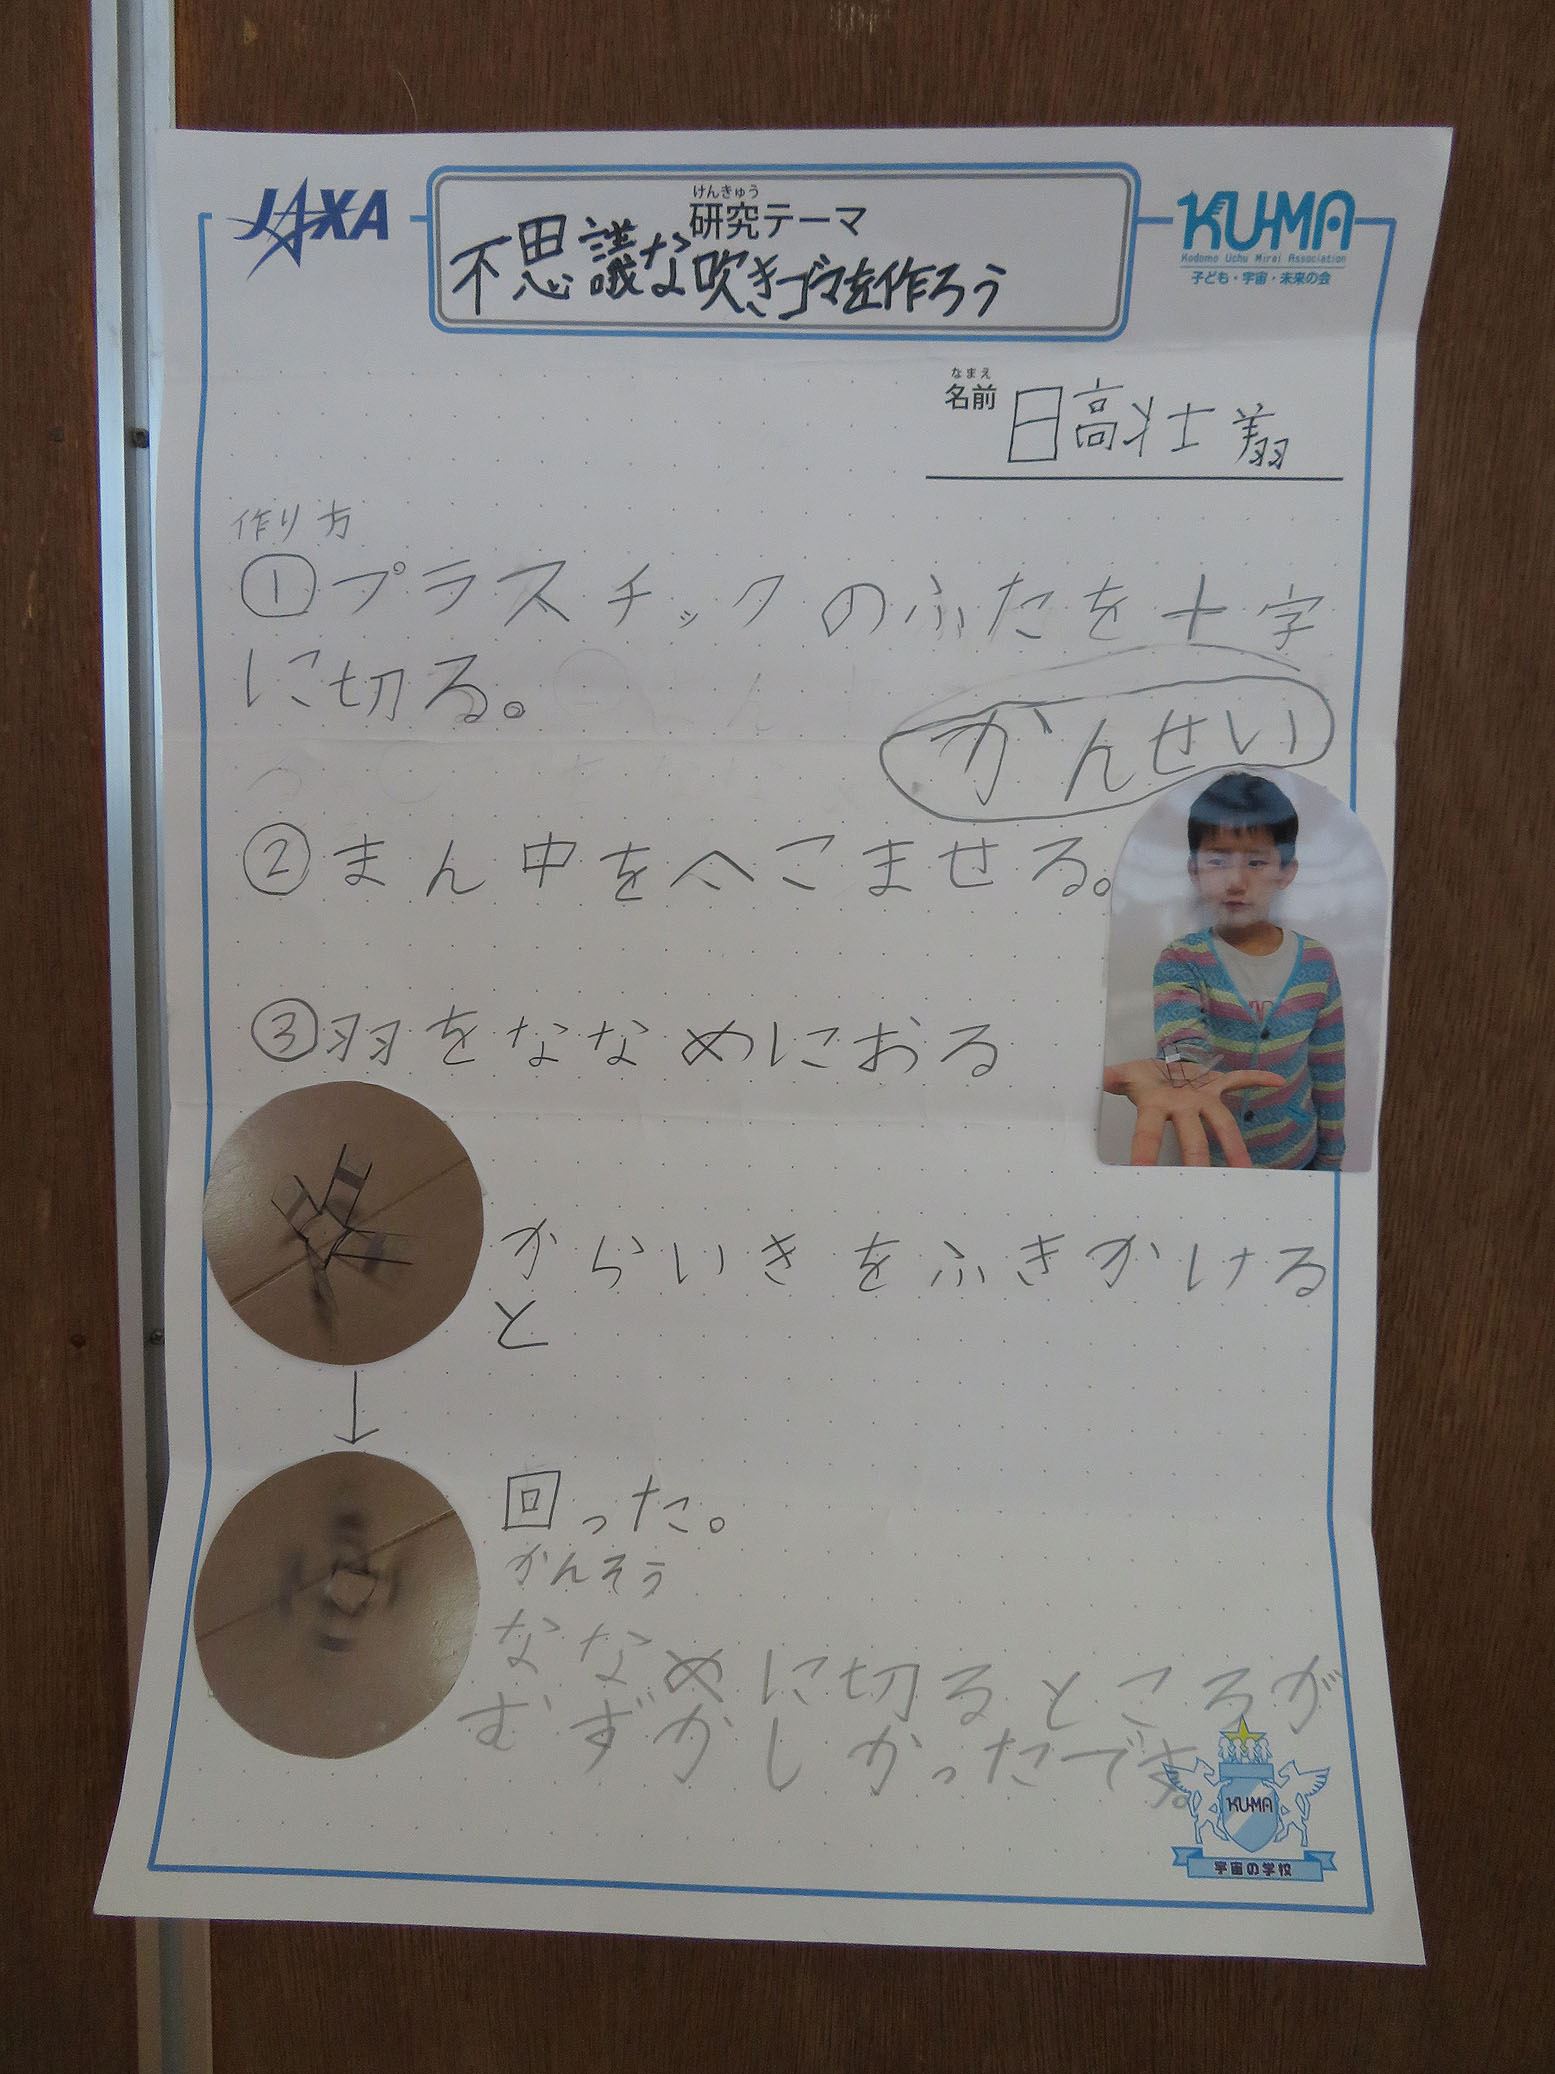 JAXA
けんきゅう
研究テーマ
不思議な吹きゴマを作ろう
KU-MA
Kodomo Uchu Mirai Association
子ども・宇宙・未来の会
なまえ
名前 日高壮士翔
作り方
①プラスチックのふたを十字
に切る。
かんせい
②まん中をへこませる。
③羽をななめにおる
からいきをふきかける
と
回った。
かんそう
ななめに切るところが
むずかしかったです。
KU-MA
宇宙の学校